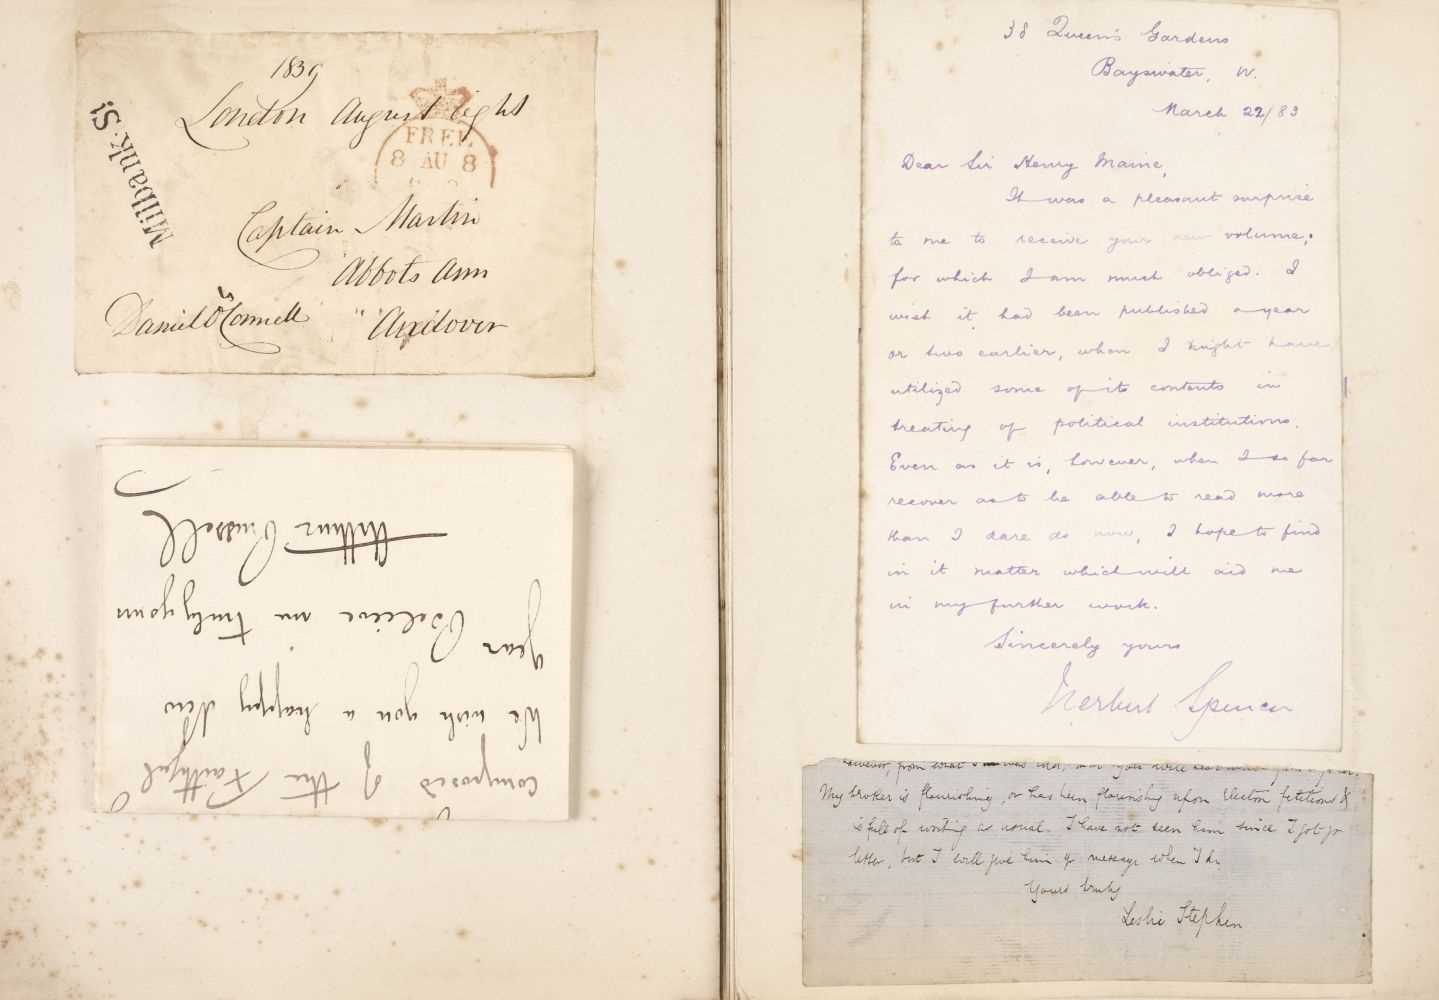 1839
London August eight
FREE
8 AU 8
Millbank: St
Captain Martin
Abbots Ann
" Andover
Daniel O'Connell
composed of the Faithful
We wish you a happy New
Year Believe me truly yours
Arthur Russell
38 Queen's Gardens
Bayswater, W.
March 22/83
Dear Sir Henry Maine,
It was a pleasant surprise
to me to receive your new volume;
for which I am much obliged. I
wish it had been published a year
or two earlier, when I might have
utilized some of its contents in
treating of political institutions.
Even as it is, however, when I so far
recover as to be able to read more
than I dare do now, I hope to find
in it matter which will aid me
in my further work.
Sincerely yours
Herbert Spencer
however, from what I
My broker is flourishing, or has been flourishing upon election petitions &
is full of writing as usual. I have not seen him since I got yr
letter, but I will give him yr message when I do.
Yours truly
Leslie Stephen